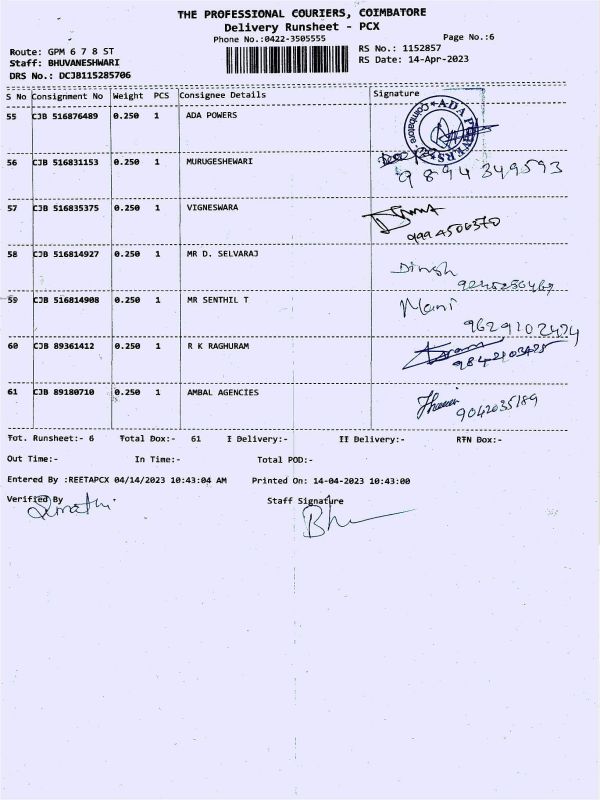 THE PROFESSIONAL COURIERS, COIMBATORE
Delivery Runsheet - PCX
Phone No.:0422-3505555
Page No.:6
Route: GPM 6 7 8 ST
RS No.: 1152857
Staff: BHUVANESHWARI
RS Date: 14-Apr-2023
DRS No.: DCJB115285706
S No Consignment No Weight PCS Consignee Details Signature
55 CJB 516876489 0.250 1 ADA POWERS
ADA Coimbatore
56 CJB 516831153 0.250 1 MURUGESHEWARI
9894349593
57 CJB 516835375 0.250 1 VIGNESWARA
9994506370
58 CJB 516814927 0.250 1 MR D. SELVARAJ Dinesh
59 CJB 516814908 0.250 1 MR SENTHIL T Mani
9629102424
60 CJB 89361412 0.250 1 R K RAGHURAM
61 CJB 89180710 0.250 1 AMBAL AGENCIES
9042035189
Tot. Runsheet:- 6 Total Dox:- 61 I Delivery:- II Delivery:- RTN Box:-
Out Time:- In Time:- Total POD:-
Entered By :REETAPCX 04/14/2023 10:43:04 AM Printed On: 14-04-2023 10:43:00
Verified By Staff Signature